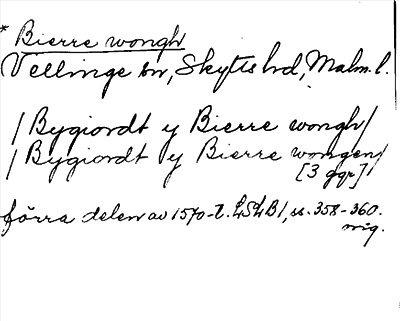 * Bierre wongh
Vellinge sn, Skytts hd, Malm. l.
/ Bygiordt y Bierre wongh /
/ Bygiordt y Bierre wongen /
[3 ggr]
förra delen av 1570-t. LSLB1, ss. 358-360.